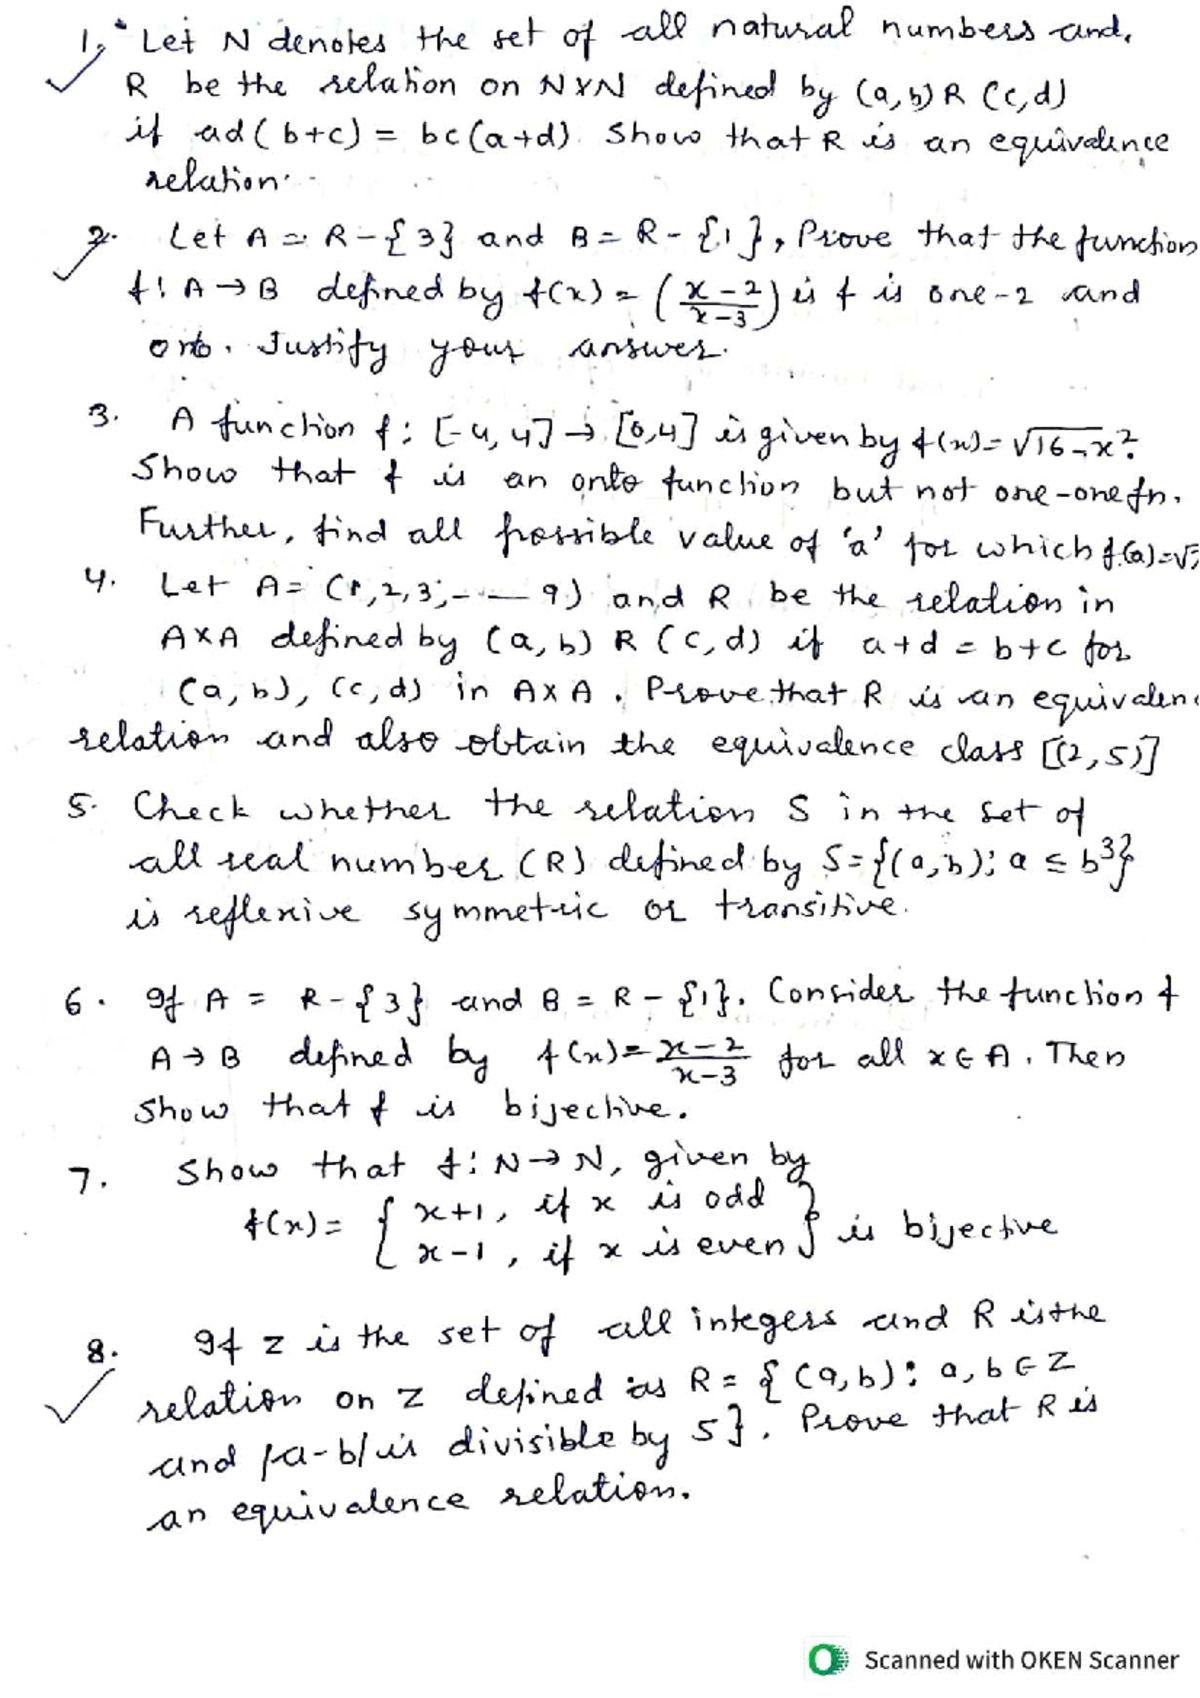 1. Let N denotes the set of all natural numbers and,
R be the relation on N×N defined by (a,b) R (c,d)
if ad(b+c) = bc(a+d). Show that R is an equivalence
relation.
2. Let A = R-{3} and B = R-{1}, Prove that the function
f: A→B defined by f(x) = (x-2/x-3) is f is one-2 and
onto. Justify your answer.
3. A function f: [-4, 4] → [0,4] is given by f(x)=√16-x².
Show that f is an onto function but not one-one fn.
Further, find all possible value of 'a' for which f(a)=√
4. Let A= (1,2,3,--- 9) and R be the relation in
A×A defined by (a,b) R (c,d) if a+d = b+c for
(a,b), (c,d) in A×A. Prove that R is an equivalenc
relation and also obtain the equivalence class [(2,5)]
5. Check whether the relation S in the set of
all real number (R) defined by S={(a,b); a ≤ b³}
is reflexive symmetric or transitive.
6. If A = R-{3} and B = R-{1}. Consider the function f
A→B defined by f(x)=x-2/x-3 for all x∈A. Then
Show that f is bijective.
7. Show that f: N→N, given by
f(x)= { x+1, if x is odd
x-1, if x is even } is bijective
8. If Z is the set of all integers and R is the
relation on Z defined as R = {(a,b): a,b∈Z
and |a-b| is divisible by 5}. Prove that R is
an equivalence relation.
Scanned with OKEN Scanner